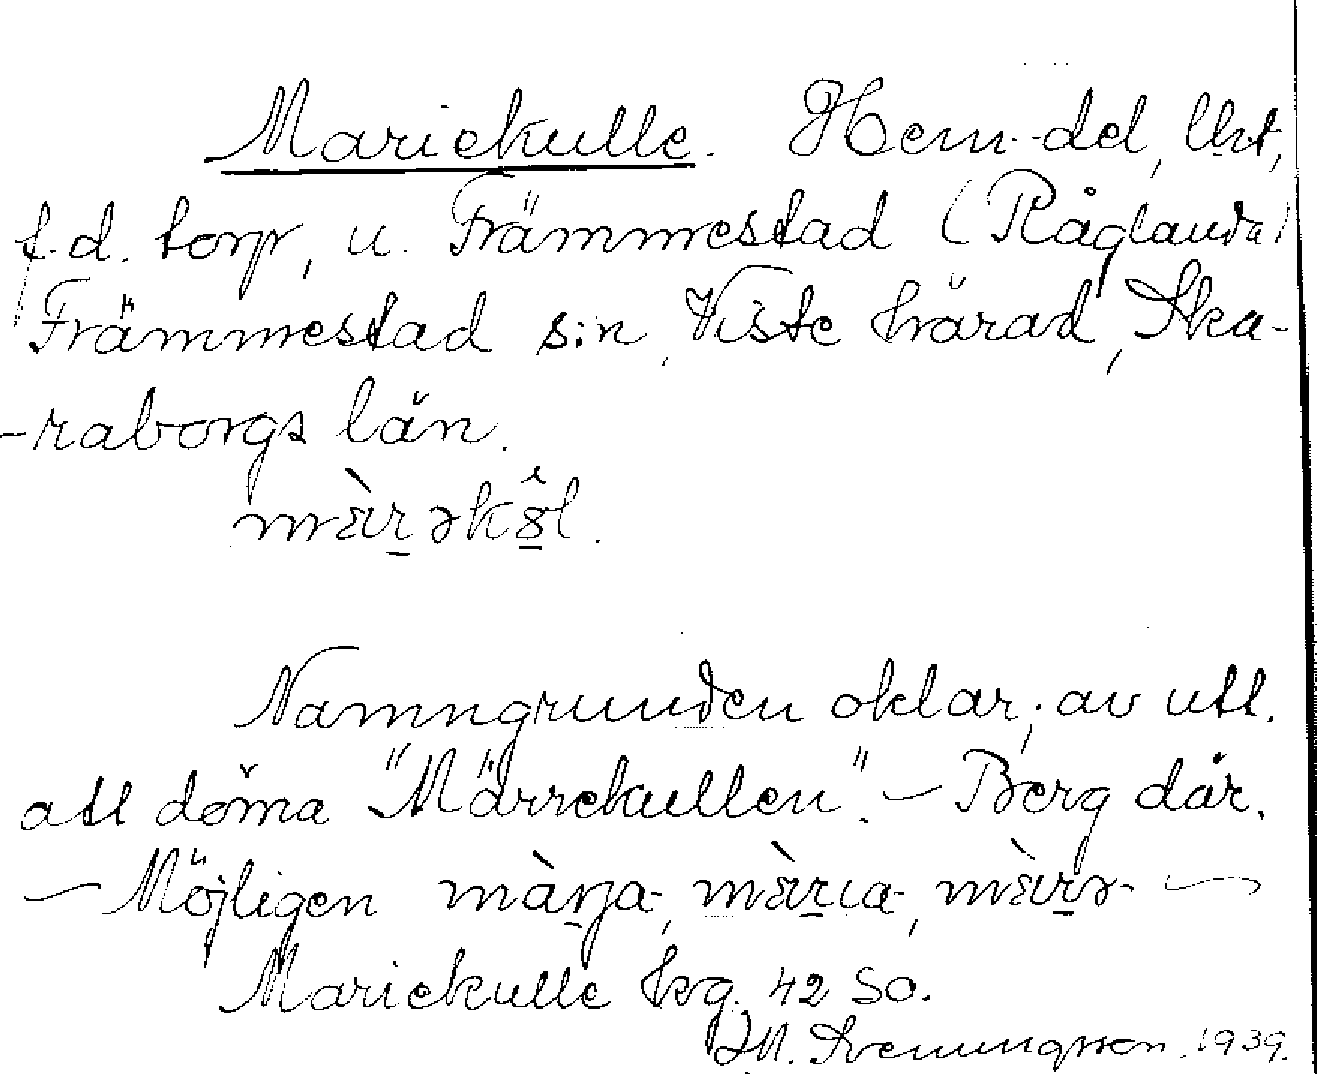 Mariekulle. Hem-del, lht,
f.d. torp, u. Främmestad (Råglanda)
Främmestad s:n, Viste härad, Ska-
-raborgs län.
màrəkô̤l.
Namngrunden oklar; av utt.
att döma "Märrekullen". – Berg där.
– Möjligen màrja-, màrıa-, màrə- –
Mariekulle kvg. 42 So.
Svenungsson. 1939.